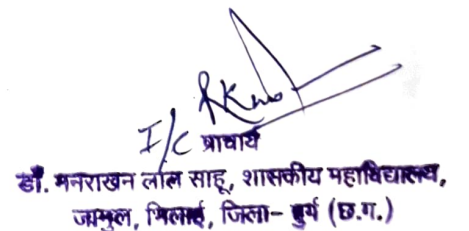 I/C प्राचार्य
डॉ. मनराखन लाल साहू, शासकीय महाविद्यालय,
जामुल, भिलाई, जिला- दुर्ग (छ.ग.)